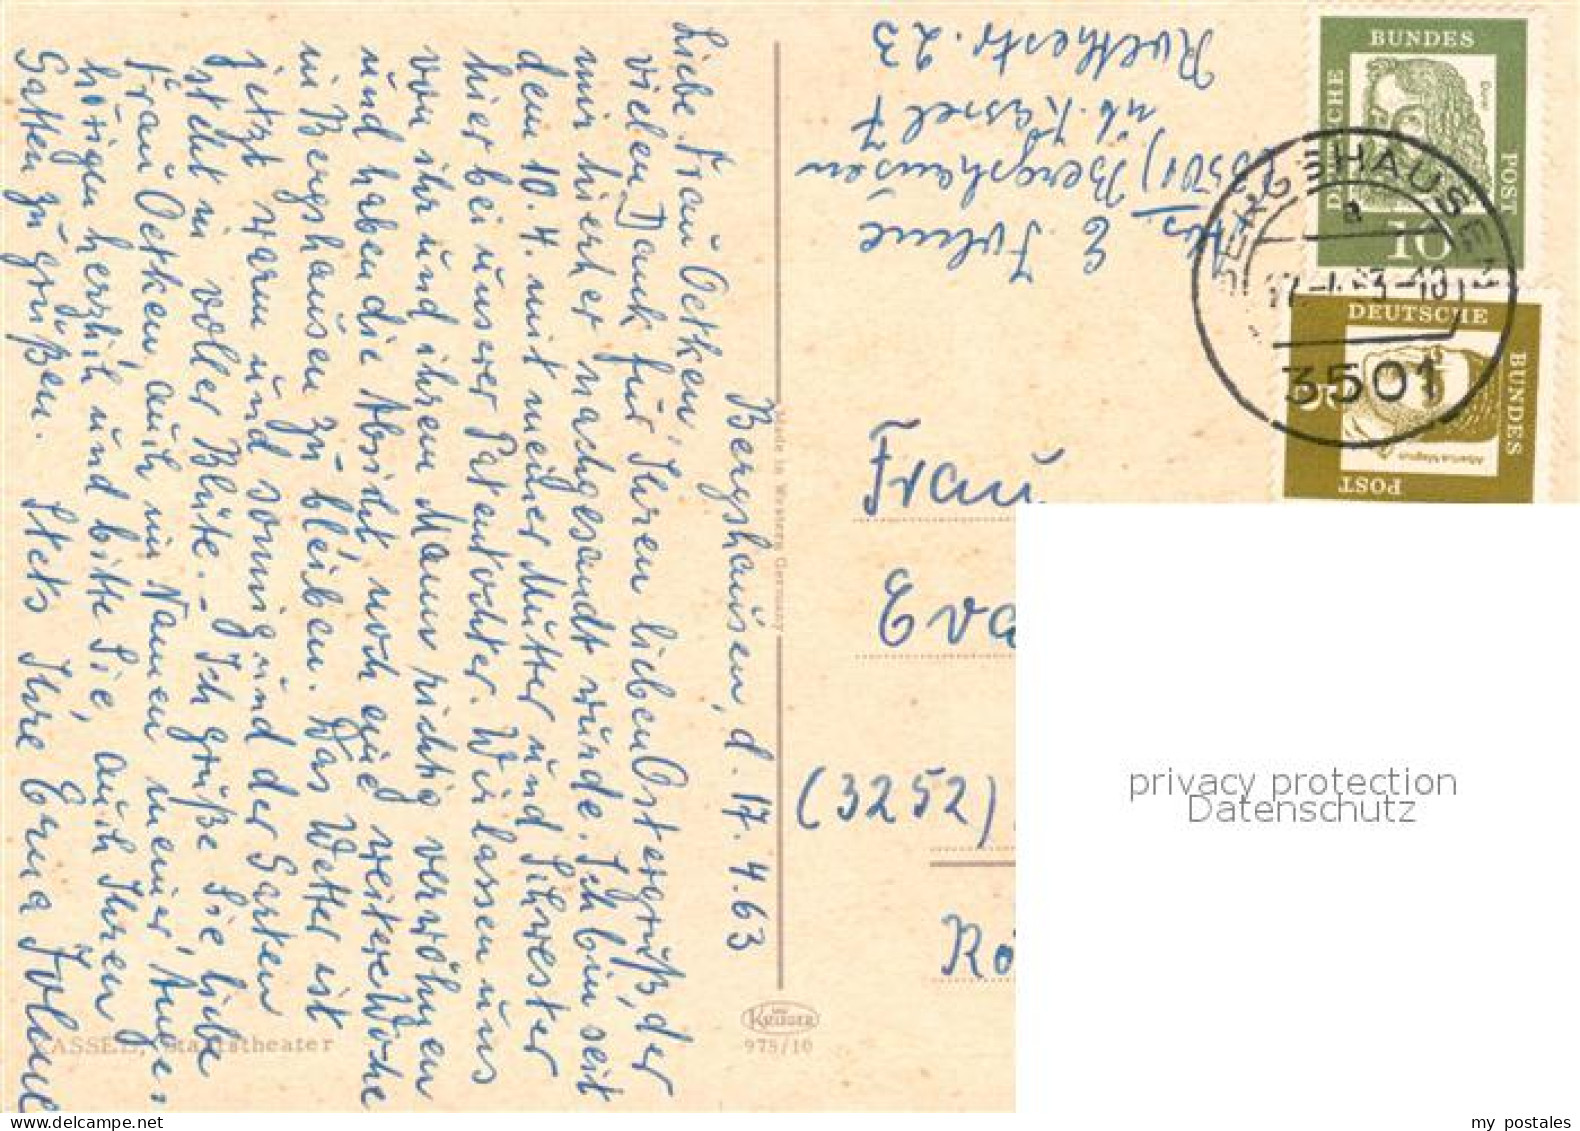 Bergshausen, d. 17.4.63
Liebe Frau Oetken,
vielen Dank für Ihren lieben Ostergruß, der
mir hierher nachgesandt wurde. Ich bin seit
dem 10.4. mit meiner Mutter und Schwester
hier bei unserer Patentochter. Wir lassen uns
von ihr und ihrem Mann richtig verwöhnen
und haben die Absicht, noch eine weitere Woche
in Bergshausen zu bleiben. Das Wetter ist
jetzt warm und sonnig und der Garten
steht in voller Blüte. – Ich grüße Sie, liebe
Frau Oetken, auch im Namen meiner Ange-
hörigen herzlich und bitte Sie, auch Ihren
Gatten zu grüßen. Stets Ihre Erna
KASSEL, Staatstheater
Made in Western Germany
Krüger
975/10
Abs. E.
(3501) Bergshausen
üb. Kassel 7
23
BUNDES
DEUTSCHE
POST
10
BERGSHAUSEN
a
3501
DEUTSCHE
BUNDES
POST
5
Albertus Magnus
Frau
Eva
(3252)
privacy protection
Datenschutz
my postales
www.delcampe.net